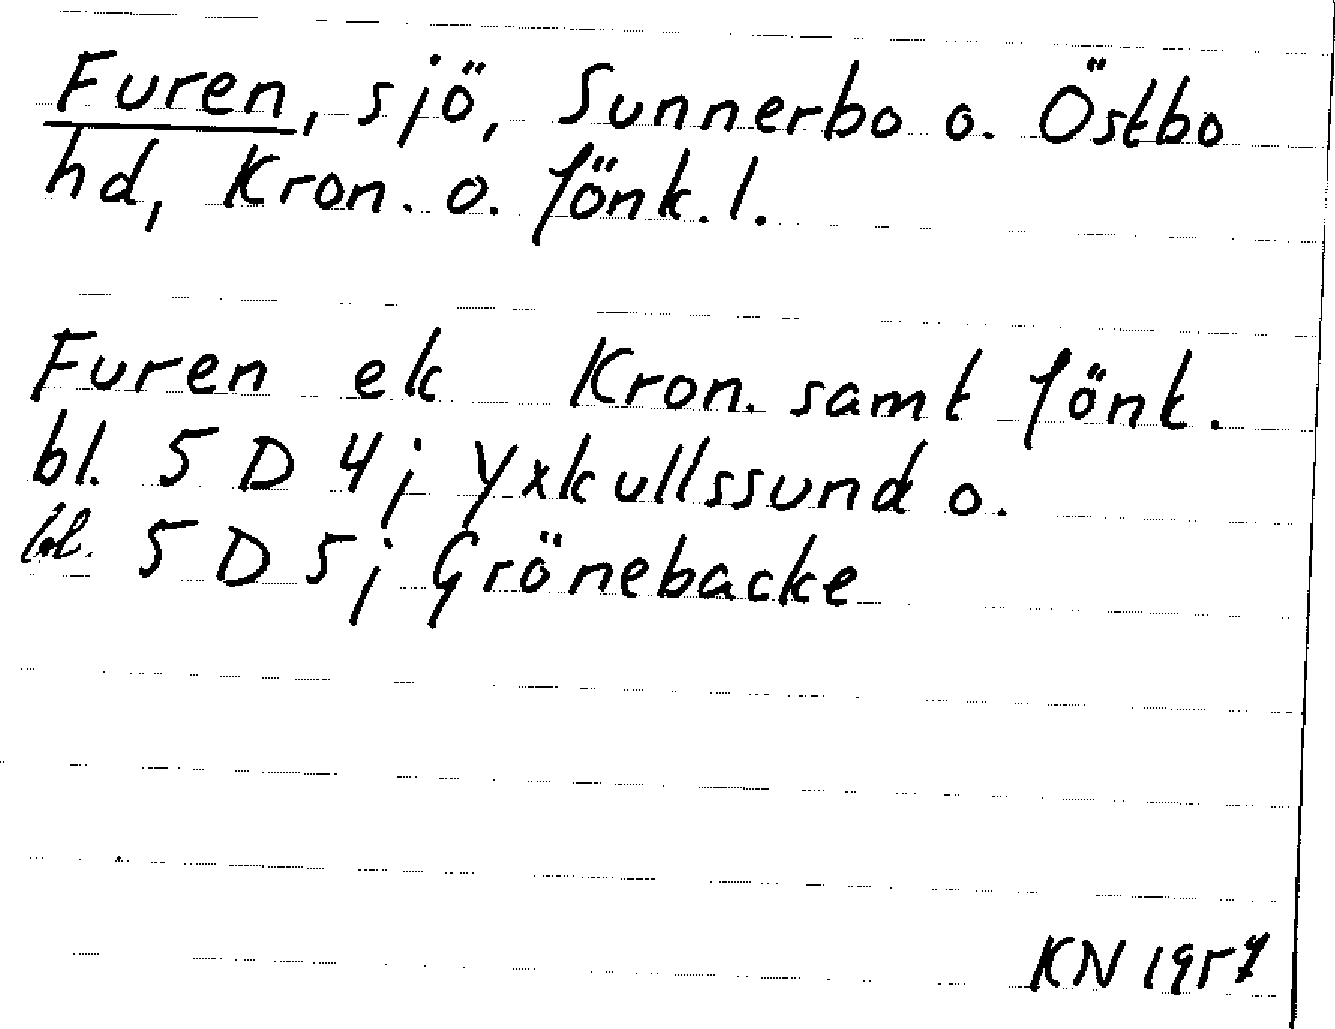 Furen, sjö, Sunnerbo o. Östbo
hd, Kron. o. Jönk. l.
Furen ek Kron. samt Jönk.
bl. 5 D 4j Yxkullssund o.
bl. 5 D 5j Grönebacke
KN 1957